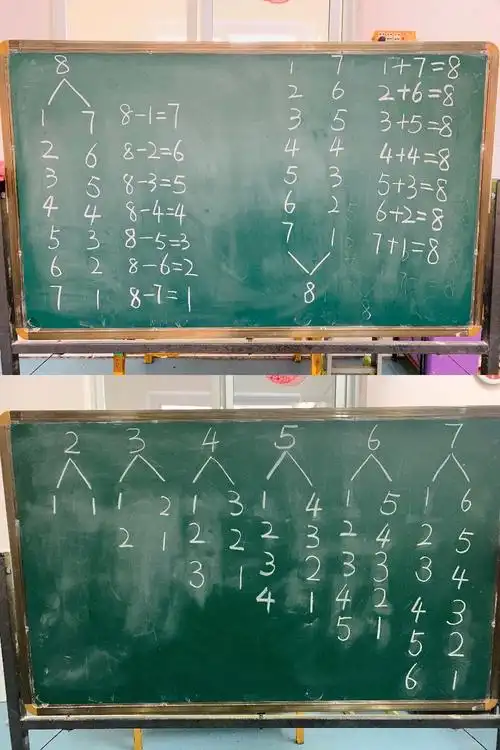 8 1 7 1+7=8
2 6 2+6=8
1 7 8-1=7 3 5 3+5=8
2 6 8-2=6 4 4 4+4=8
3 5 8-3=5 5 3 5+3=8
4 4 8-4=4 6 2 6+2=8
5 3 8-5=3 7 1 7+1=8
6 2 8-6=2
7 1 8-7=1 8
2 3 4 5 6 7
1 1 1 2 1 3 1 4 1 5 1 6
2 1 2 2 2 3 2 4 2 5
3 1 3 2 3 3 3 4
4 1 4 2 4 3
5 1 5 2
6 1